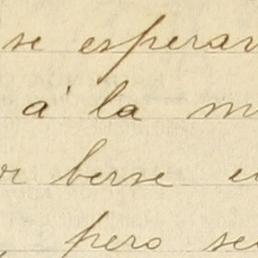 se esperar
á la m
berse e
, pero se